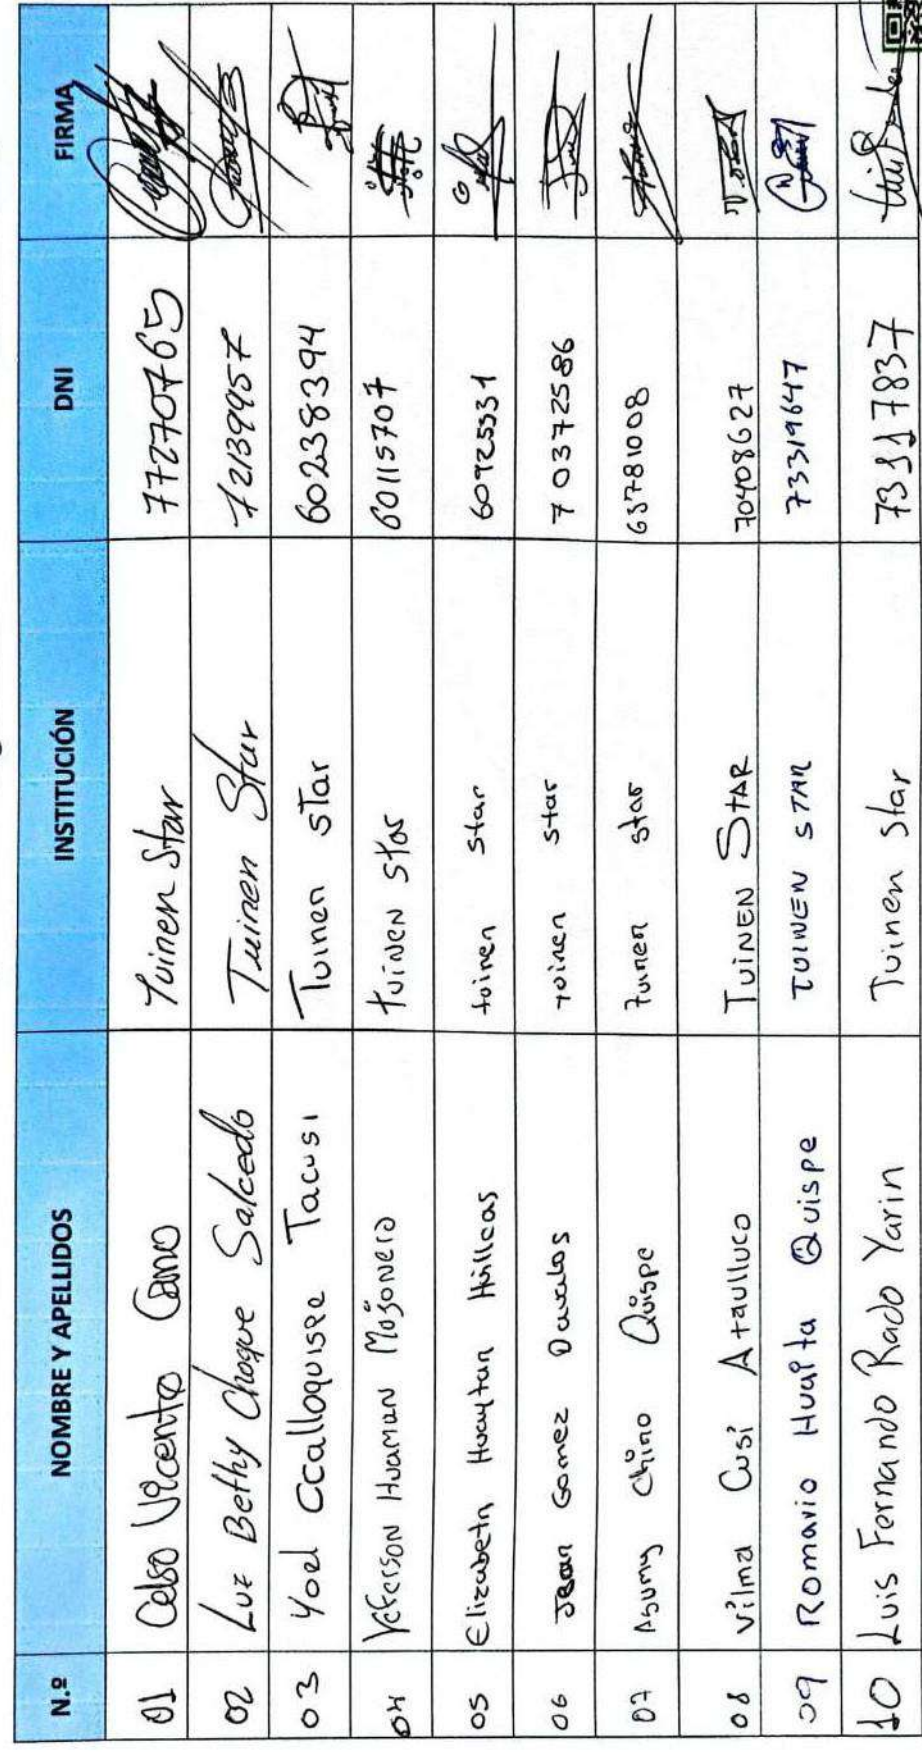 N.º NOMBRE Y APELLIDOS INSTITUCIÓN DNI FIRMA
01 Celso Vicente Cano Tuinen Star 77270765
02 Luz Bethy Choque Salcedo Tuinen Star 72139957
03 Yoel Ccalloquispe Tacusi Tuinen sTar 60238394
04 Yeferson Huaman Mojonero tuiNeN star 60115707
05 Elizabeth Huaytan Huillcas tuinen star 60925531
06 Jean Gomez Davalos tuinen star 70372586
07 Asumy Chino Quispe tuinen star 63781008
08 Vilma Cusi Ataulluco TuiNEN STAR 70408627
09 Romario Huaita Quispe TUINEN STAR 73319647
10 Luis Fernando Rado Yarin Tuinen Star 73117837